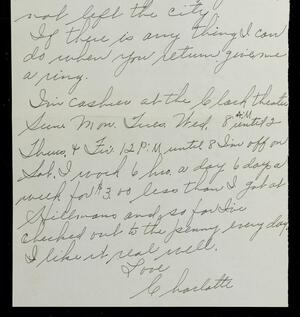 not left the city.
If there is any thing I can
do when you return give me
a ring.
I'm cashier at the Clark theater
Sun. Mon. Tues. Wed. 8 AM until 2
Thurs. & Fri. 12 P.M until 8 I'm off on
Sat. I work 6 hrs. a day 6 days a
week for $3.00 less than I got at
Hillmans and so far I've
checked out to the penny every day.
I like it real well.
Love
Charlotte